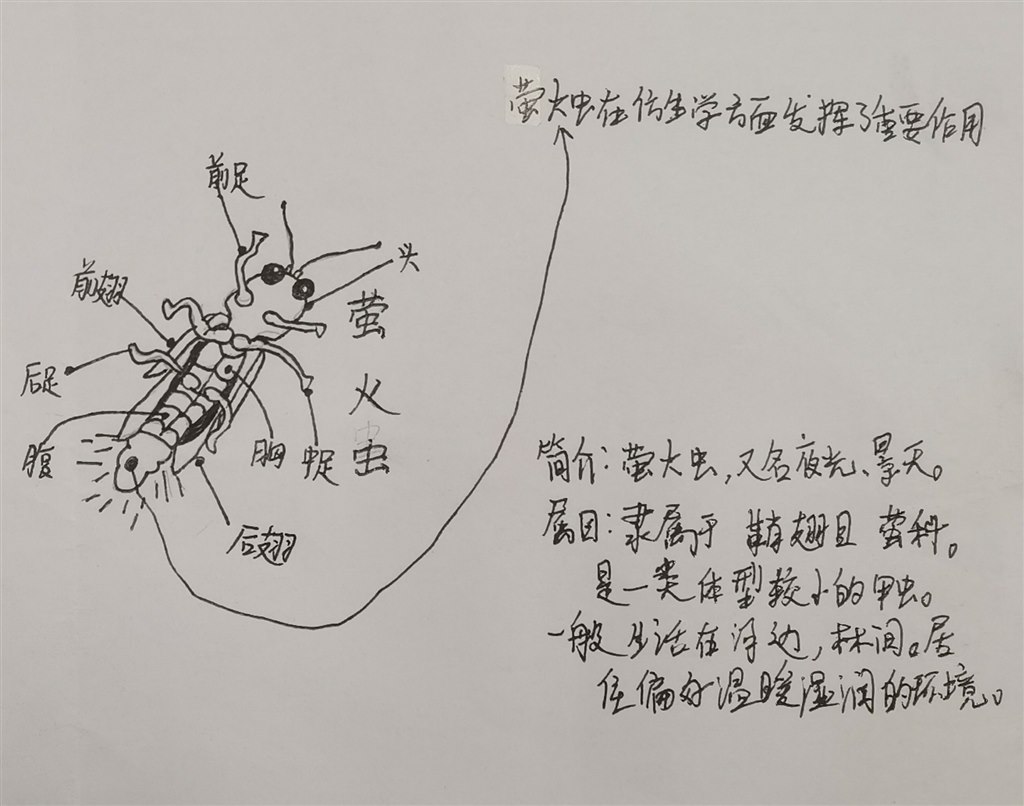 萤火虫在仿生学方面发挥了重要作用
前足
头
前翅
萤
火
虫
后足
腹
胸
中足
后翅
简介：萤火虫，又名夜光、景天。
属目：隶属于 鞘翅目 萤科。
是一类体型较小的甲虫。
一般生活在河边，林间。居
住偏好温暖湿润的环境。